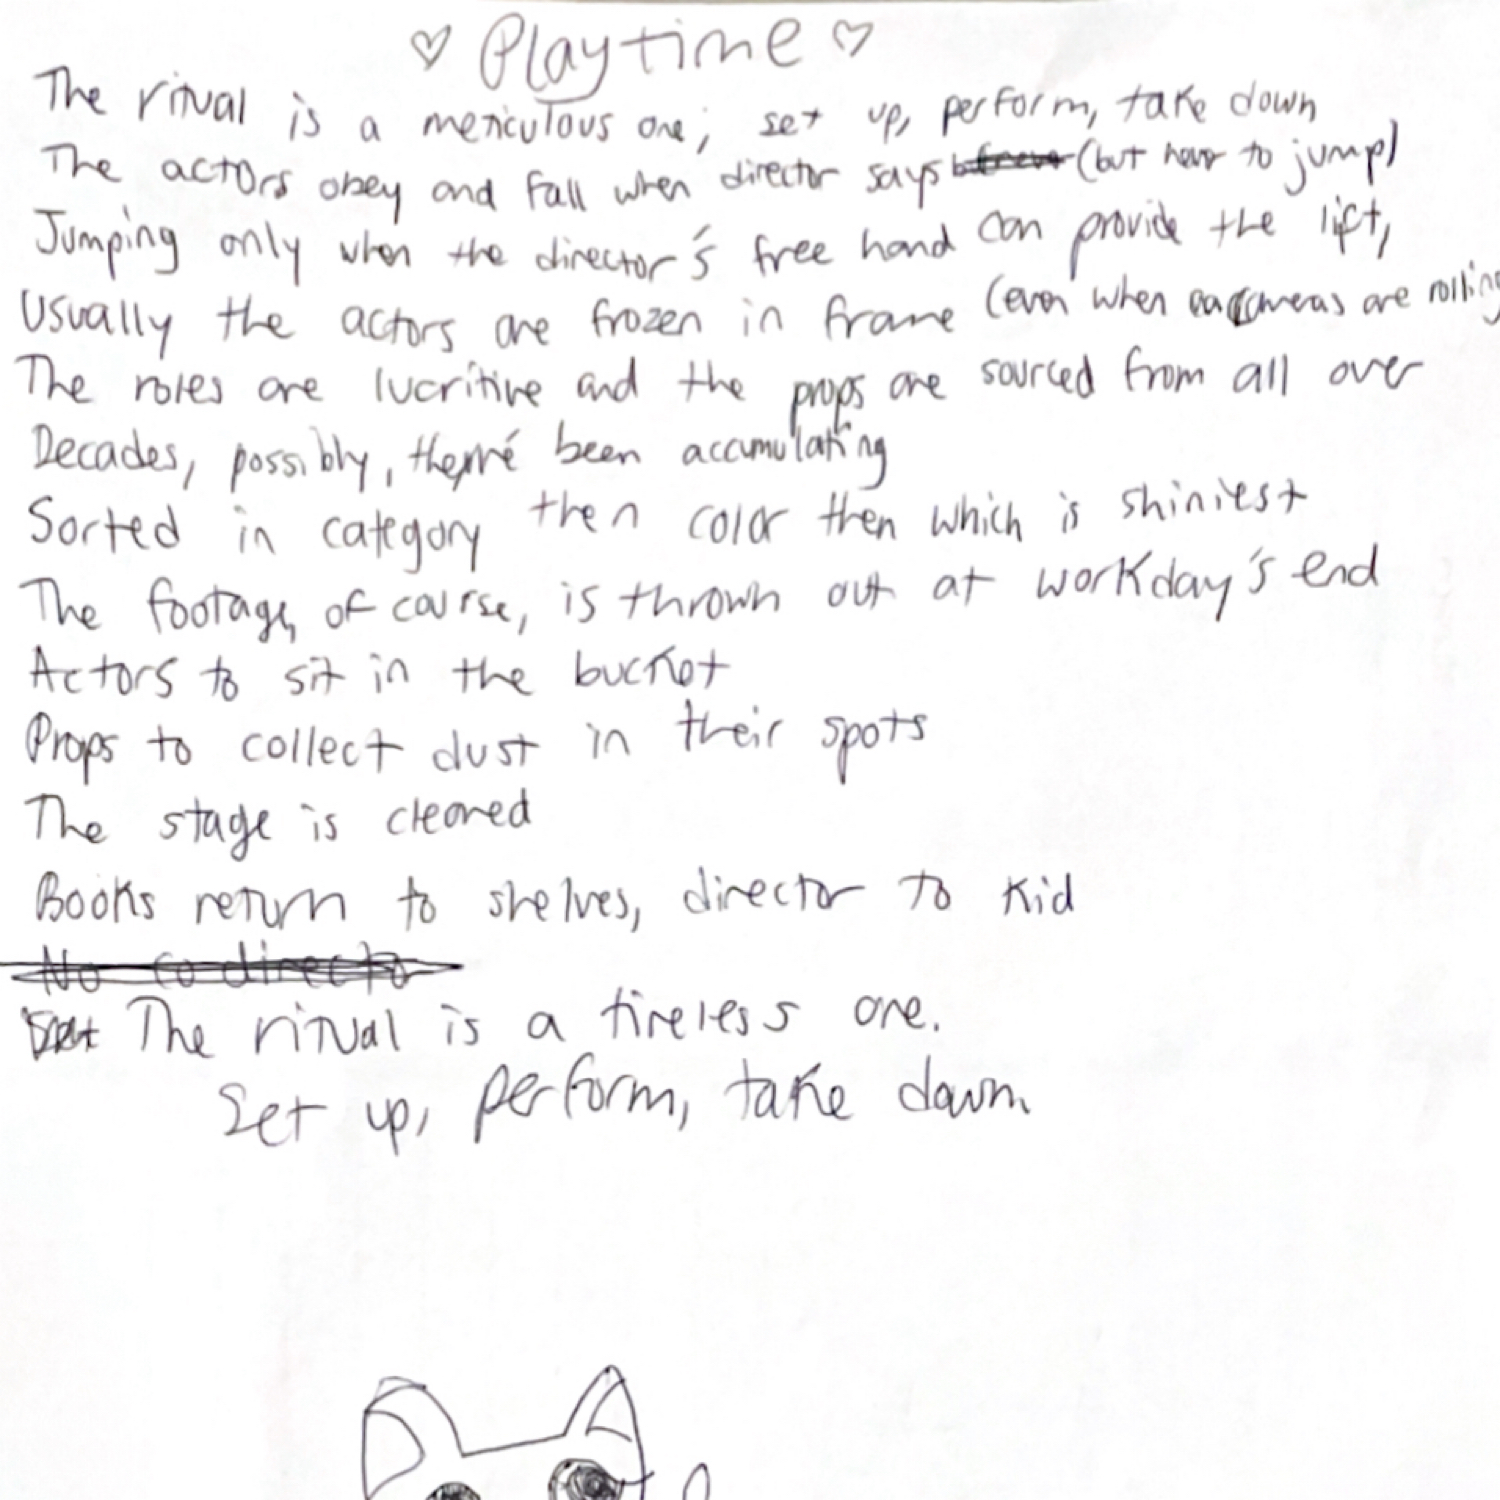 ♡ Playtime ♡
The ritual is a meticulous one; set up, perform, take down
The actors obey and fall when director says (but have to jump)
Jumping only when the director's free hand can provide the lift,
Usually the actors are frozen in frame (even when cameras are rolling
The roles are lucritive and the props are sourced from all over
Decades, possibly, they've been accumulating
Sorted in category then color then which is shiniest
The footage, of course, is thrown out at workday's end
Actors to sit in the bucket
Props to collect dust in their spots
The stage is cleared
Books return to shelves, director to kid
No co directo
The ritual is a tireless one.
Set up, perform, take down